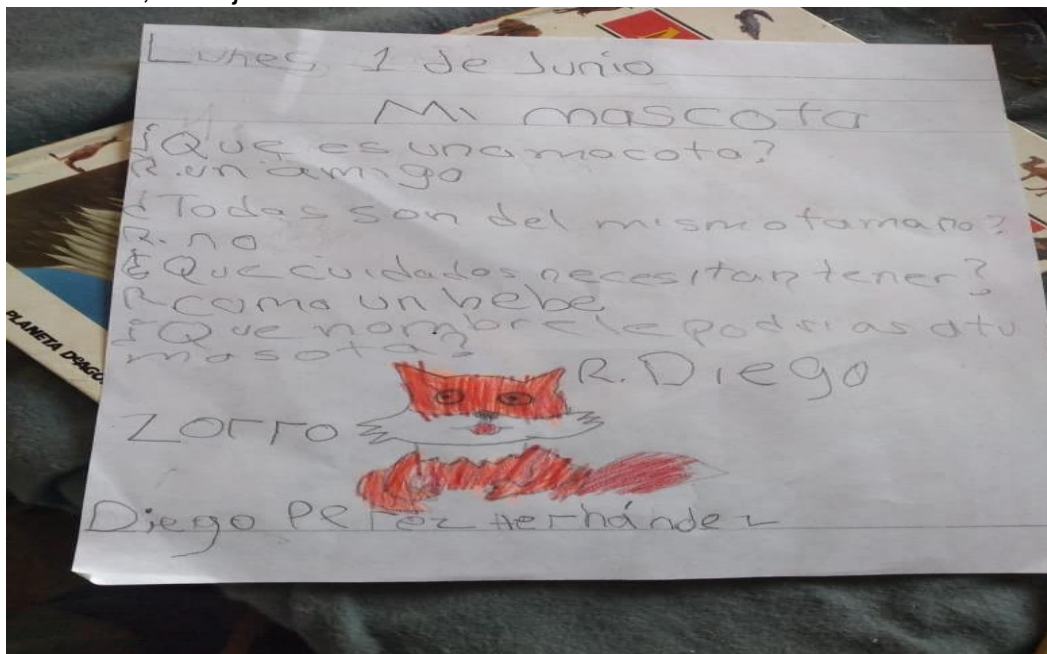 Lunes, 1 de Junio
Mi mascota
¿Que es una macota?
R. un amigo
¿Todas son del mismo tamaño?
R. no
¿Que cuidados necesitan tener?
R como un bebe
¿Que nombre le podrias a tu
masota?
R. Diego
Zorro
Diego Perez Hernández
PLANETA DEAGO